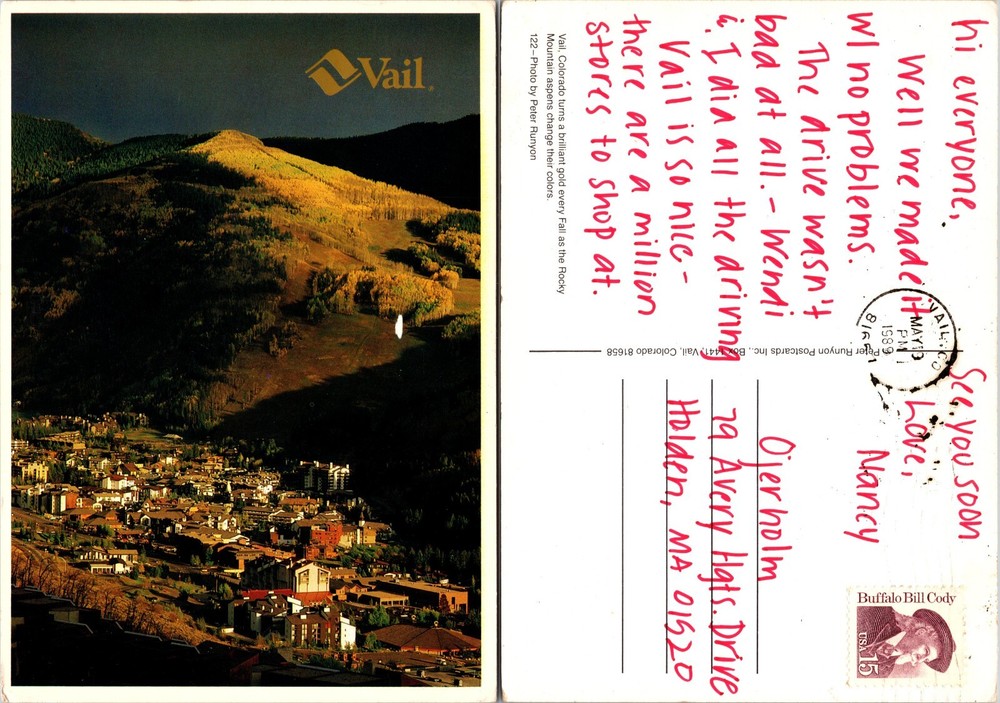 Vail
Hi everyone,
Well we made it
w/ no problems.
The drive wasn't
bad at all. - Wendi
& I did all the driving
Vail is so nice -
there are a million
stores to shop at.
See you soon
Love,
Nancy
Vail, Colorado turns a brilliant gold every Fall as the Rocky
Mountain aspens change their colors.
122 – Photo by Peter Runyon
Peter Runyon Postcards Inc., Box 1441, Vail, Colorado 81658
VAIL, CO
MAY 13
PM
1989
81657
Ojerholm
79 Avery Hgts. Drive
Holden, MA 01520
Buffalo Bill Cody
USA 15